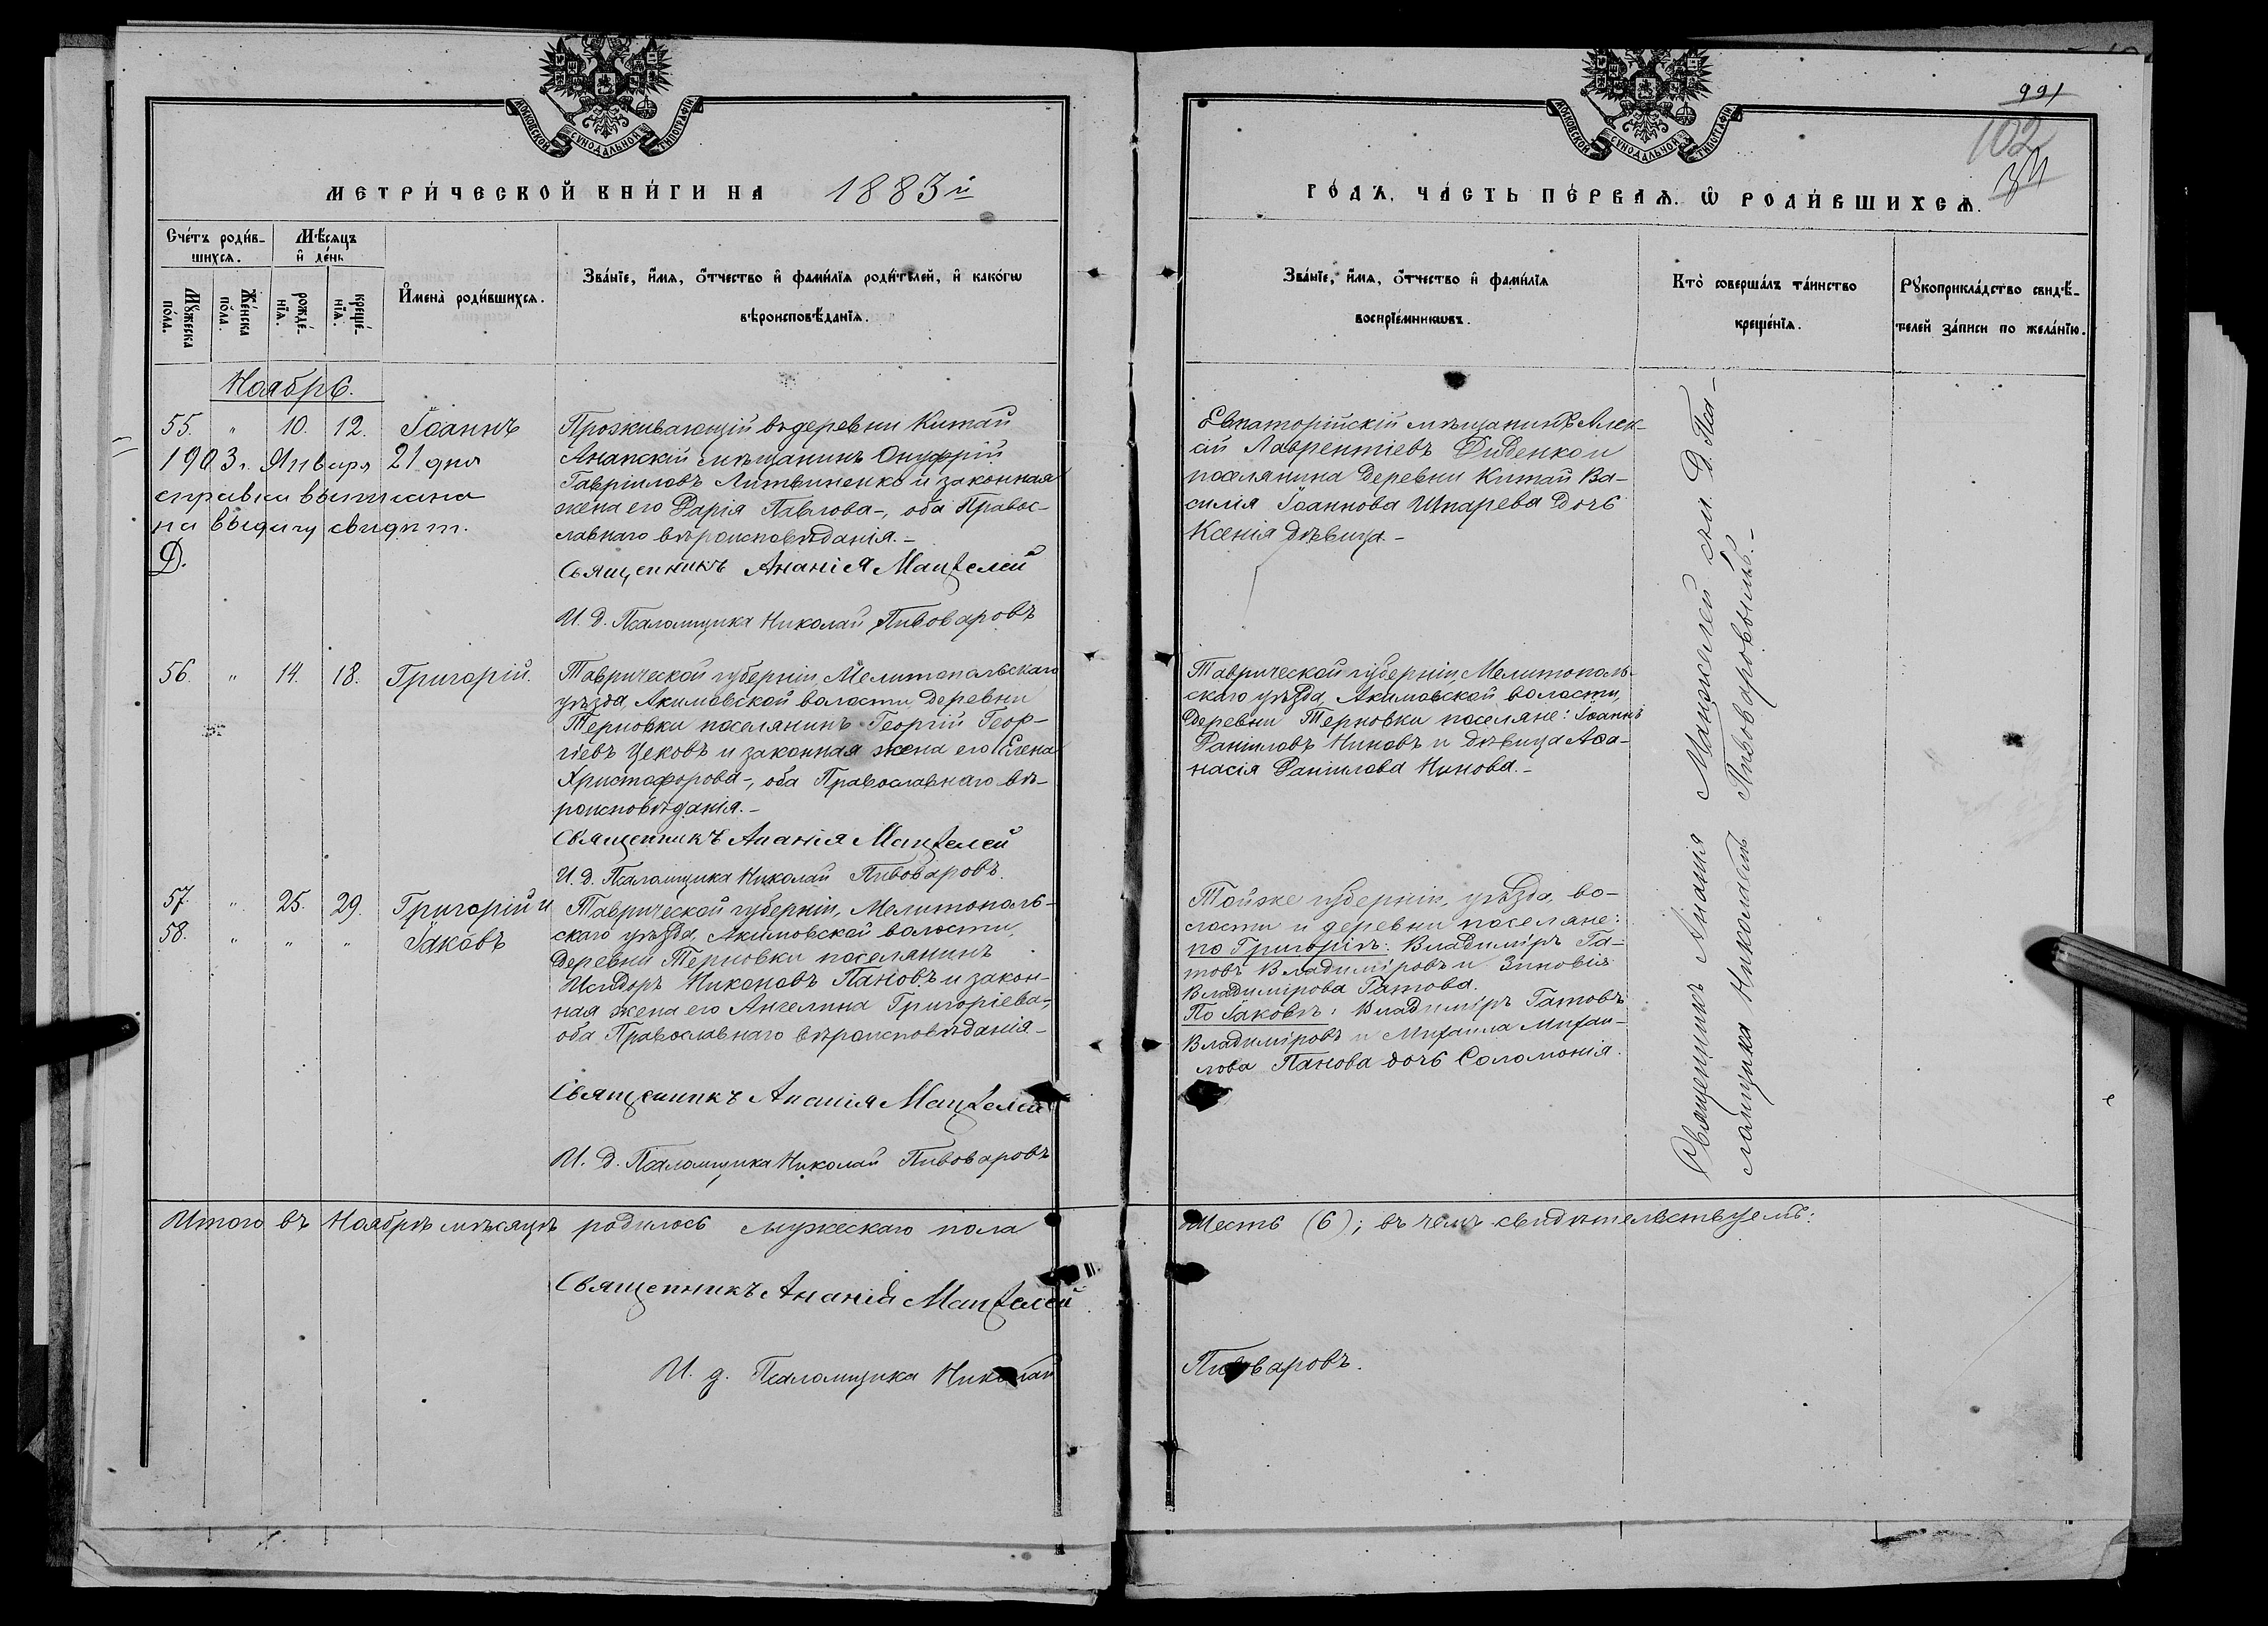 МОСКОВСКОЙ СѴНОДАЛЬНОЙ ТИПОГРАФІИ
МЕТРИ́ЧЕСКОЙ КНИ́ГИ НА 1883й
Сче́тъ роди́в-
шихся.
Мѣ́сяцъ
и҆ де́нь
Мꙋ́жеска
по́ла.
Же́нска
по́ла.
рожде́-
нїѧ.
креще́-
нїѧ.
И҆мена̀ роди́вшихсѧ.
Зва́нїе, и҆́мѧ, ѻ҆́тчество и҆ фами́лїѧ роди́телей, и҆ како́гѡ
вѣроисповѣ́данїѧ.
Ноябрь.
55. " 10. 12. Іоаннъ
1903 г. Января 21 дня
справка выписана
на выдачу свидѣт.
Проживающій въ деревни Китай
Анапскій мѣщанинъ Онуфрій
Гавріиловъ Литвиненко и законная
жена его Дарія Павлова-, оба Правос-
лавнаго вѣроисповѣданія.-
Священникъ Ананія Манжелей
И. Д. Псаломщика Николай Пивоваровъ
56. " 14. 18. Григорій.
Таврической губерніи, Мелитопольскаго
уѣзда, Акимовской волости деревни
Терновки поселянинъ Георгій Геор-
гіевъ Цековъ и законная жена его Елена
Христофорова-, оба Православнаго вѣ-
роисповѣданія.-
Священникъ Ананія Манжелей
И. Д. Псаломщика Николай Пивоваровъ.
57. " 25. 29. Григорій и
58. " " " Іаковъ
Таврической губерніи, Мелитополь-
скаго уѣзда, Акимовской волости,
деревни Терновки поселянинъ
Исидоръ Никоновъ Пановъ и закон-
ная жена его Ангелина Григоріева-,
оба Православнаго вѣроисповѣданія-
Священникъ Ананія Манжелей
И. Д. Псаломщика Николай Пивоваровъ
Итого въ Ноябрѣ мѣсяцѣ родилось мужескаго пола
Священникъ Ананій Манжелей
И. д. Псаломщика Николай
991
102
34
МОСКОВСКОЙ СѴНОДАЛЬНОЙ ТИПОГРАФІИ
ГО́ДЪ, ЧА́СТЬ ПЕ́РВАѦ. Ѽ РОДИ́ВШИХСѦ.
Зва́нїе, и҆́мѧ, ѻ҆́тчество и҆ фами́лїѧ
воспрїе́мникѡвъ.
Кто̀ соверша́лъ та́инство
креще́нїѧ.
Рꙋкоприкла́дство свидѣ́-
телей за́писи по жела́нїю.
Евпаторійскій мѣщанинъ Алек-
сій Лаврентіевъ Диденко и
поселянина деревни Китай Ва-
силія Іоаннова Шпарева дочь
Ксенія дѣвица.-
Таврической губерніи, Мелитополь-
скаго уѣзда, Акимовской волости,
деревни Терновки поселяне: Іоаннъ
Даніиловъ Ниновъ и дѣвица Аѳа-
насія Даніилова Нинова.-
Тойже губерніи, уѣзда, во-
лости и деревни поселяне:
по Григоріѣ: Владиміръ Га-
товъ Владиміровъ и Зиновія
Владимірова Гатова.
По Іаковѣ: Владиміръ Гатовъ
Владиміровъ и Михаила Михаи-
лова Панова дочь Соломонія.
Священникъ Ананія Манжелей съ И. Д. Пса-
ломщика Николаемъ Пивоваровымъ.-
шесть (6); въ чемъ свидѣтельствуемъ:
Пивоваровъ.